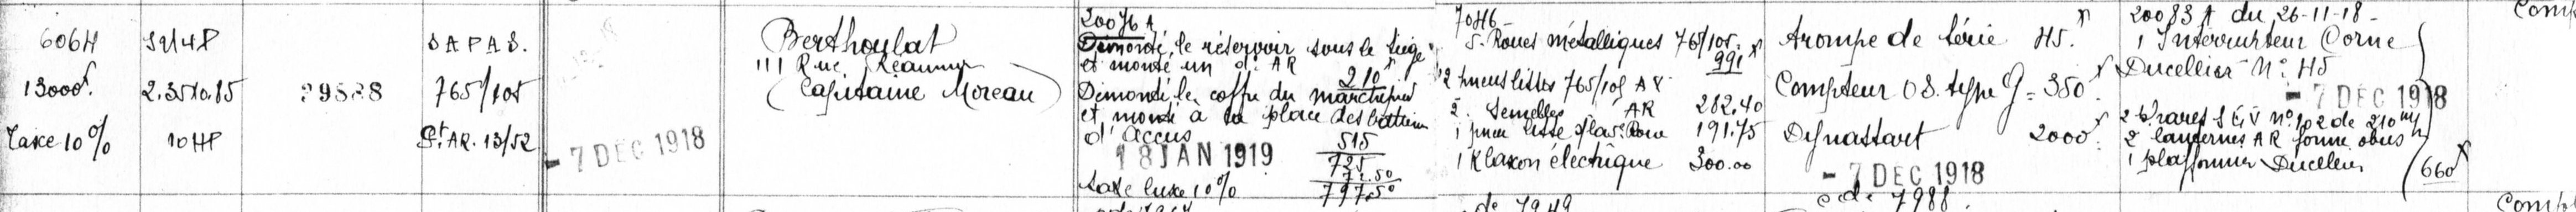 606H
13000f.
Taxe 10%
S2148
2.35x0.85
10HP
29588
S A P A S.
765/105
Pt AR. 13/52
- 7 DEC 1918
Berthoulat
111 Rue Réaumur
(Capitaine Moreau)
20076 A
Démonté le réservoir sous le siège
et monté un d° AR 210
Démonté le coffre du marchepied
et monté à la place des batteries
d'accus 515
18 JAN 1919 725
72.50
taxe luxe 10% 797.50
70H6
5 Roues métalliques 765/105. 991
2 pneus lisses 765/105 AV
2 Semelles AR 282.40
1 pneu lisse 191.75
1 Klaxon électrique 300.00
de 7949
Atrompe de série HS.
Compteur OS. type G = 350
Dynastart 2000f.
- 7 DEC 1918
de 7988
20083 A du 26-11-18
1 Interrupteur Corne
Ducellier N° H5
- 7 DEC 1918
2 Phares S E V n° 102 de 210 m/m
2 lanternes AR forme obus
1 plafonnier Ducellier
660f
Comp
Comp